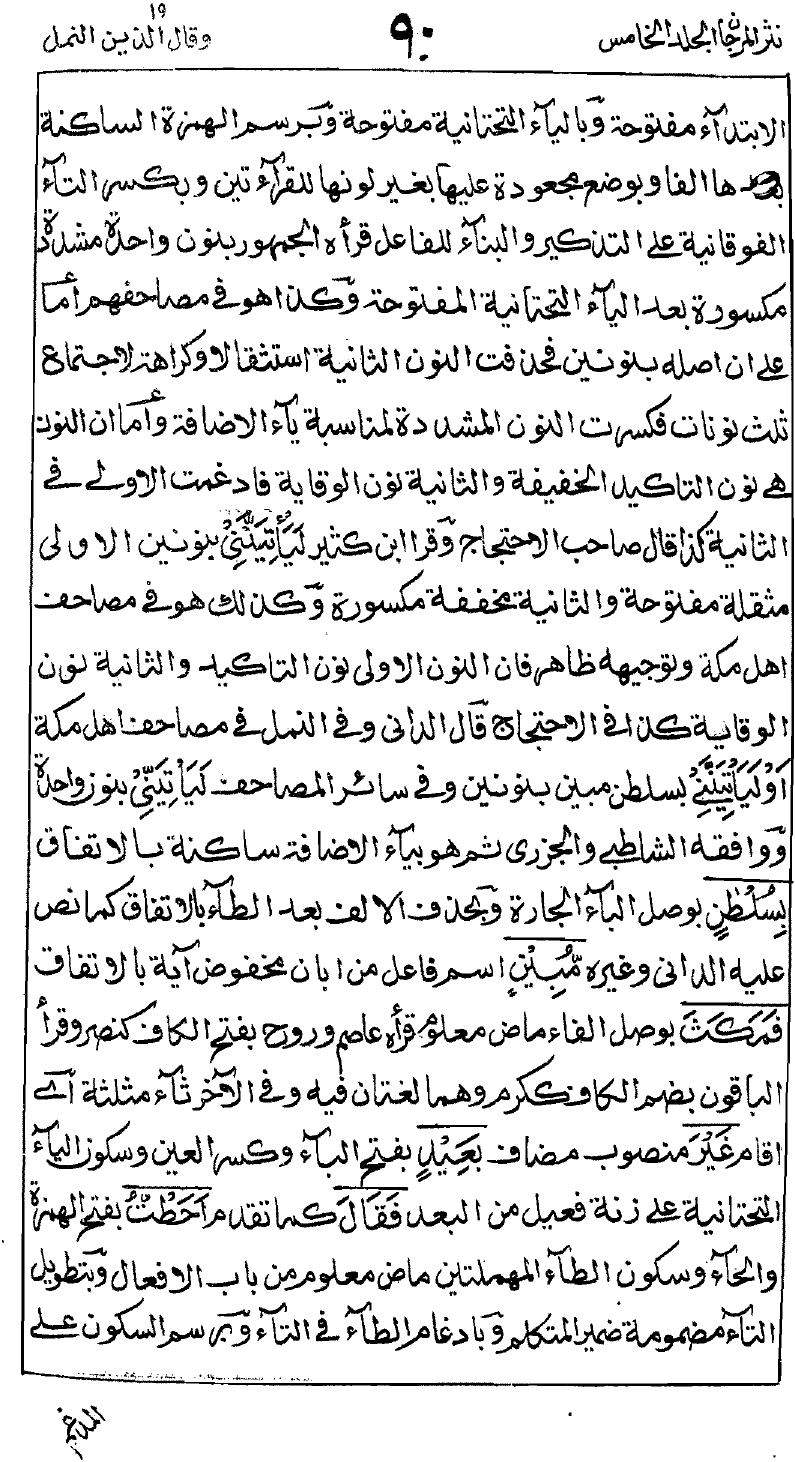 نثر المرجان الجلد الخامس ٩٠ وقال الذين ١٩ النمل
الابتدآء مفتوحة وَبالياء التحتانية مفتوحة وَبرسم الهمزة الساكنة
بعدها الفا وبوضع مجعودة عليها بغير لونها للقرآءتين وبكسر التآء
الفوقانية على التذكير والبنآء للفاعل قرأه الجمهور بنون واحدة مشددة
مكسورة بعد اليآء التحتانية المفتوحة وَكذا هو في مصاحفهم أما
على ان اصله بنونين فحذفت النون الثانية استثقالا وكراهة لاجتماع
ثلث نونات فكسرت النون المشددة لمناسبة يآء الاضافة وأما ان النون
هي نون التاكيد الخفيفة والثانية نون الوقاية فادغمت الاولى في
الثانية كذا قال صاحب الاحتجاج وَقرا ابن كثير لَيَأْتِيَنَّنِيْ بنونين الاولى
مثقلة مفتوحة والثانية مخففة مكسورة وَكذلك هو في مصاحف
اهل مكة وتوجيهه ظاهر فان النون الاولى نون التاكيد والثانية نون
الوقاية كذا في الاحتجاج قَال الدانى وفي النمل في مصاحف اهل مكة
اَوْ لَيَأْتِيَنَّنِيْ بسلطن مبين بنونين وفي سائر المصاحف لَيَأْتِيَنِّيْ بنون واحدة
وَوافقه الشاطبي والجزرى ثم هو بيآء الاضافة ساكنة بالاتفاق
بِسُلْطٰنٍ بوصل البآء الجارة وَبحذف الالف بعد الطآء بالاتفاق كما نص
عليه الدانى وغيره مُّبِيْنٍ اسم فاعل من ابان مخفوض آية بالاتفاق
فَمَكَثَ بوصل الفاء ماض معلوم قرأه عاصم وروح بفتح الكاف كنصر وقرأ
الباقون بضم الكاف ككرم وهما لغتان فيه وفي الآخر ثآء مثلثة أے
اقام غَيْرَ منصوب مضاف بَعِيْدٍ بفتح البآء وكسر العين وسكون اليآء
التحتانية على زنة فعيل من البعد فَقَالَ كما تقدم اَحَطْتُّ بفتح الهمزة
والحآء وسكون الطآء المهملتين ماض معلوم من باب الافعال وَبتطويل
التآء مضمومة ضمير المتكلم وَبادغام الطآء في التآء وَبرسم السكون على
المدغم